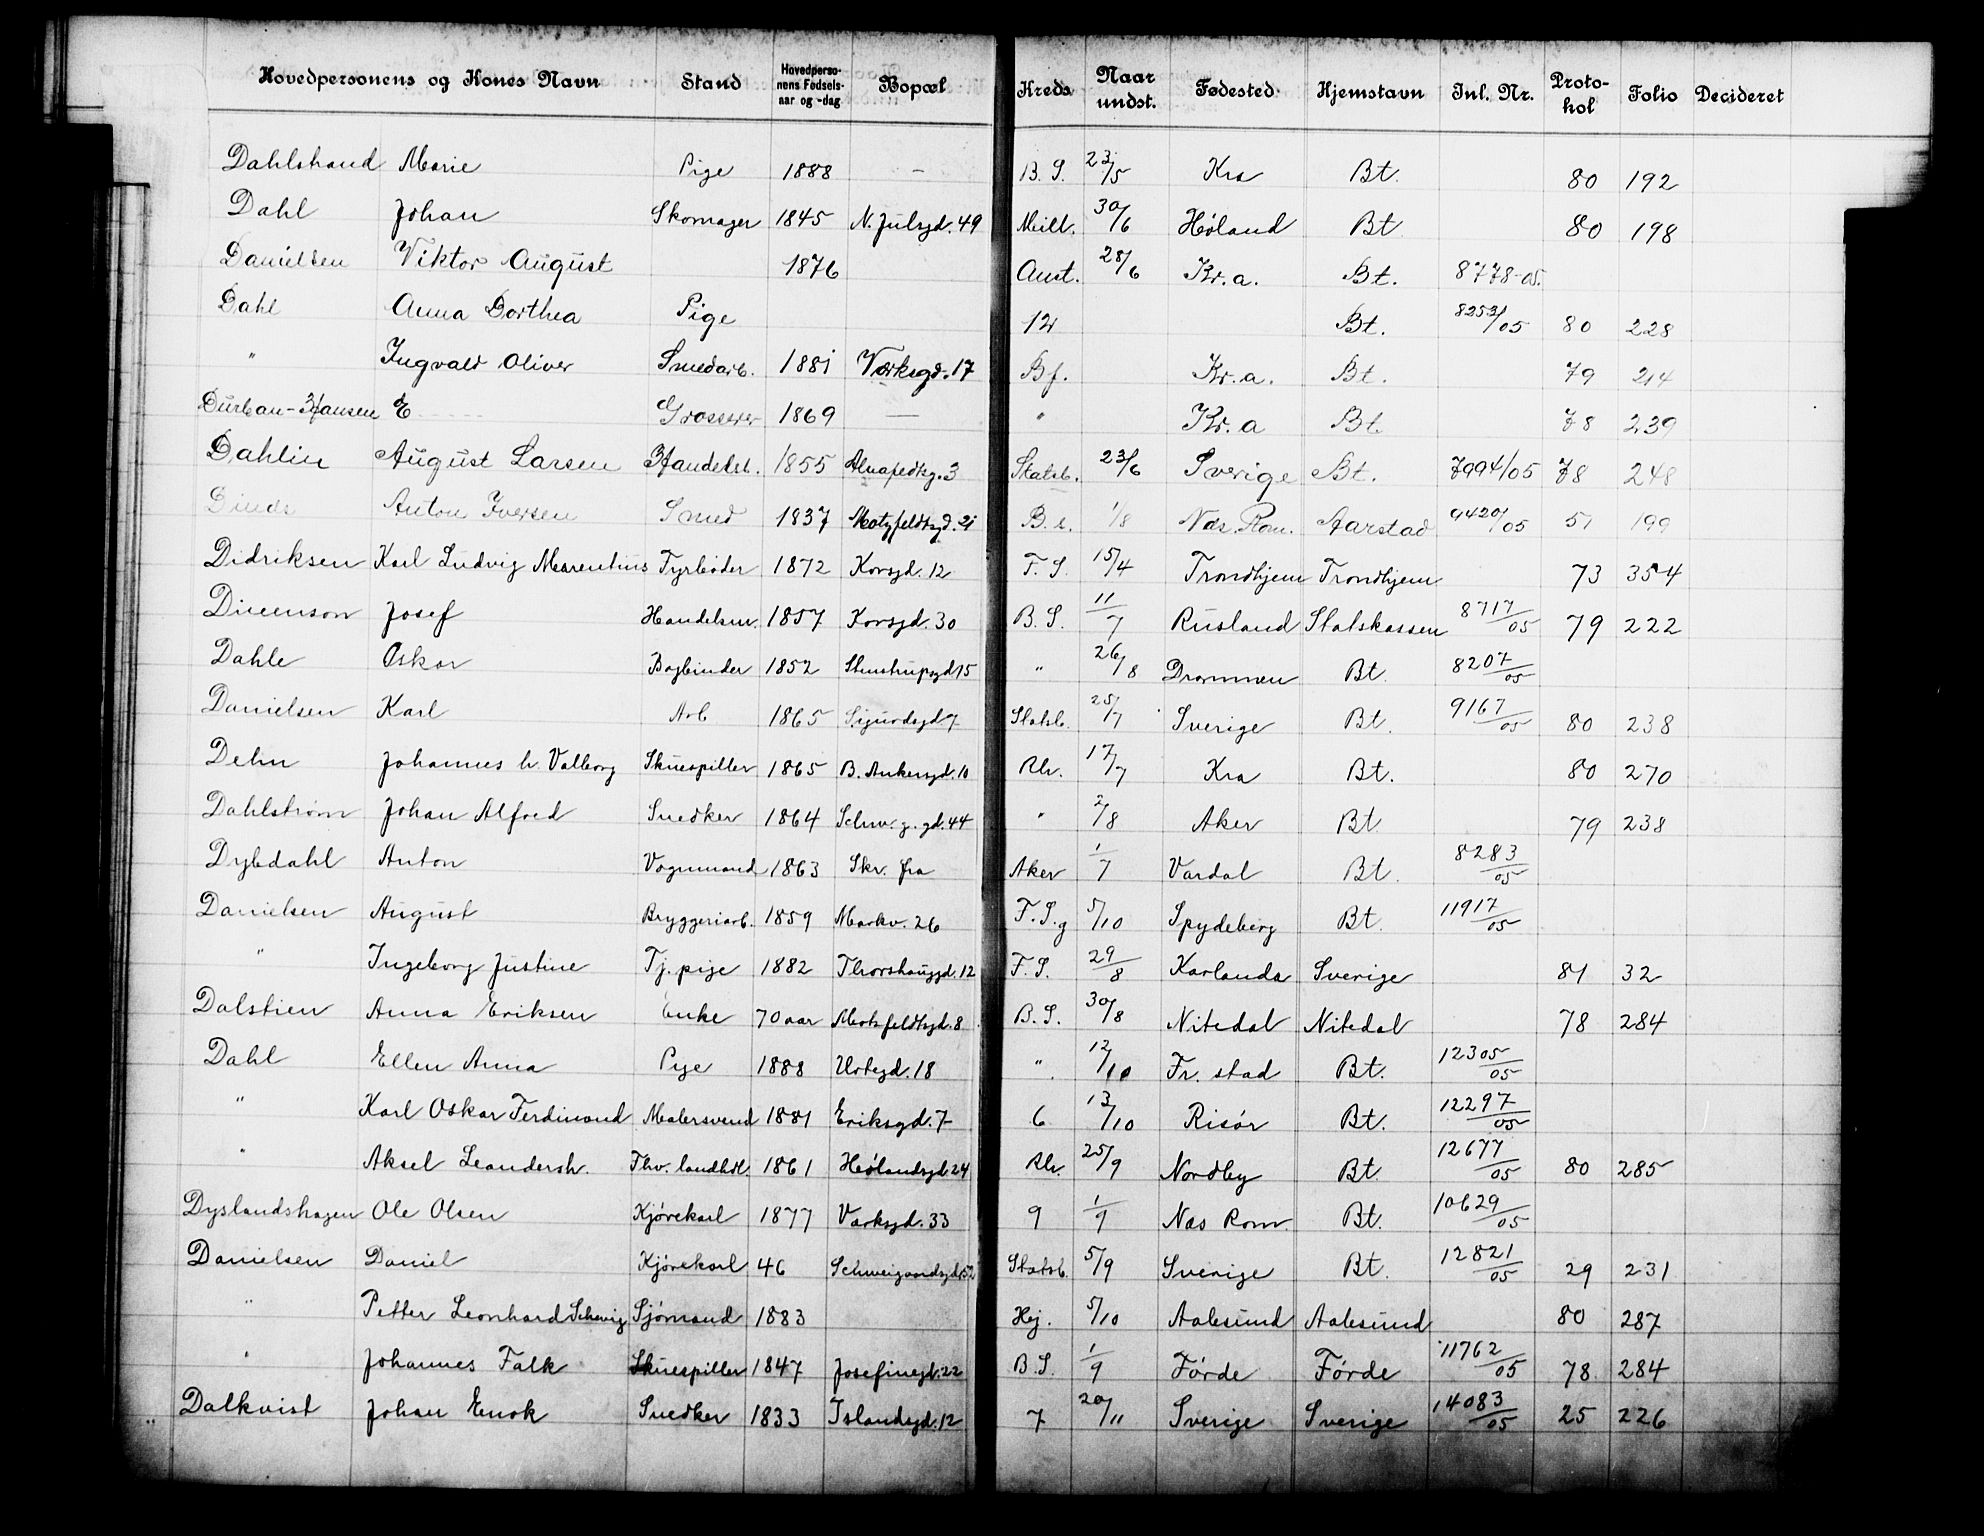 Hovedpersonens og Kones Navn Stand Hovedpersonens Fødselsaar og -dag Bopæl Kreds Naar undst. Fødested Hjemstavn Inl. Nr. Protokol Folio Decideret
Dahlstrand Marie Pige 1888 — B. S. 23/5 Kra Bt. 80 192
Dahl Johan Skomager 1845 N. Julsgd. 49 30/6 Høland Bt 80 198
Danielsen Viktor August 1876 28/6 Kr.a. Bt. 8778-05.
Dahl Anna Dorthea Pige 12 Bt. 8253/05 80 228
" Ingvald Oliver Smedarb. 1881 Værksgd. 17 Bf. Kr.a. Bt. 79 214
Durban-Hansen E Grosserer 1869 — " Kr.a Bt 78 239
Dahlin August Larsen 1855 Statsb. 23/6 Sverige Bt. 7994/05 78 248
Anton Iversen Smed 1837 Motzfeldtsgd. 21 B. s. 1/8 Næs Rom. Aarstad 9420/05 51 199
Didriksen Karl Ludvig Marentius Fyrbøder 1872 Korsgd. 12 F. S. 15/4 Trondhjem Trondhjem 73 354
Josef Handelsm. 1857 Korsgd. 30 B. S. 11/7 Rusland Statskassen 8717/05 79 222
Dahle Oskar Bogbinder 1852 Stenstrupsgd 15 " 26/8 Drammen Bt. 8207/05
Danielsen Karl Arb 1865 Sigurdsgd. 7 Statsb. 25/7 Sverige Bt. 9167/05 80 238
Dehn Johannes h. Valborg Skuespiller 1865 B. Ankersgd. 10 17/7 Kra Bt. 80 270
Dahlstrøm Johan Alfred Snedker 1864 Schw. g. gd. 44 " 2/8 Aker Bt 79 238
Dybdahl Anton Vognmand 1863 Skr. fra Aker 1/7 Vardal Bt. 8283/05
Danielsen August Bryggeriarb. 1859 Markv. 26 F. S. g 5/10 Spydeberg Bt. 11917/05
" Ingeborg Justine Tj. pige 1882 Thorshauggd. 12 F. S. 29/8 Karlanda Sverige 81 32
Dalstien Anna Eriksen Enke 70 aar Motzfeldtsgd. 8 B. S. 30/8 Nitedal Nitedal 78 284
Dahl Ellen Anna Pige 1888 Urtegd. 18 " 12/10 Fr. stad Bt. 12305/05
" Karl Oskar Ferdinand Malersvend 1881 Eriksgd. 7 6 13/10 Risør Bt. 12297/05
" Aksel Leandersh. Fhv. landhdl. 1861 Hølandsgd. 24 25/9 Nordby Bt. 12677/05 80 285
Dyslandshagen Ole Olsen Kjørekarl 1877 Værksgd. 33 9 1/9 Næs Rom. Bt. 10629/05
Danielsen Daniel Kjørekarl 46 Schweigaardsgd. 52 Statsb. 5/9 Sverige Bt. 12821/05 29 231
" Petter Leonhard Schevig Sjømand 1883 Hej. 5/10 Aalesund Aalesund 80 287
" Johannes Falk Skuespiller 1847 Josefinegd. 22 B. S. 1/9 Førde Førde 11762/05 78 284
Dalkvist Johan Enok Snedker 1833 Islandsgd. 12 7 20/11 Sverige Sverige 14083/05 25 226